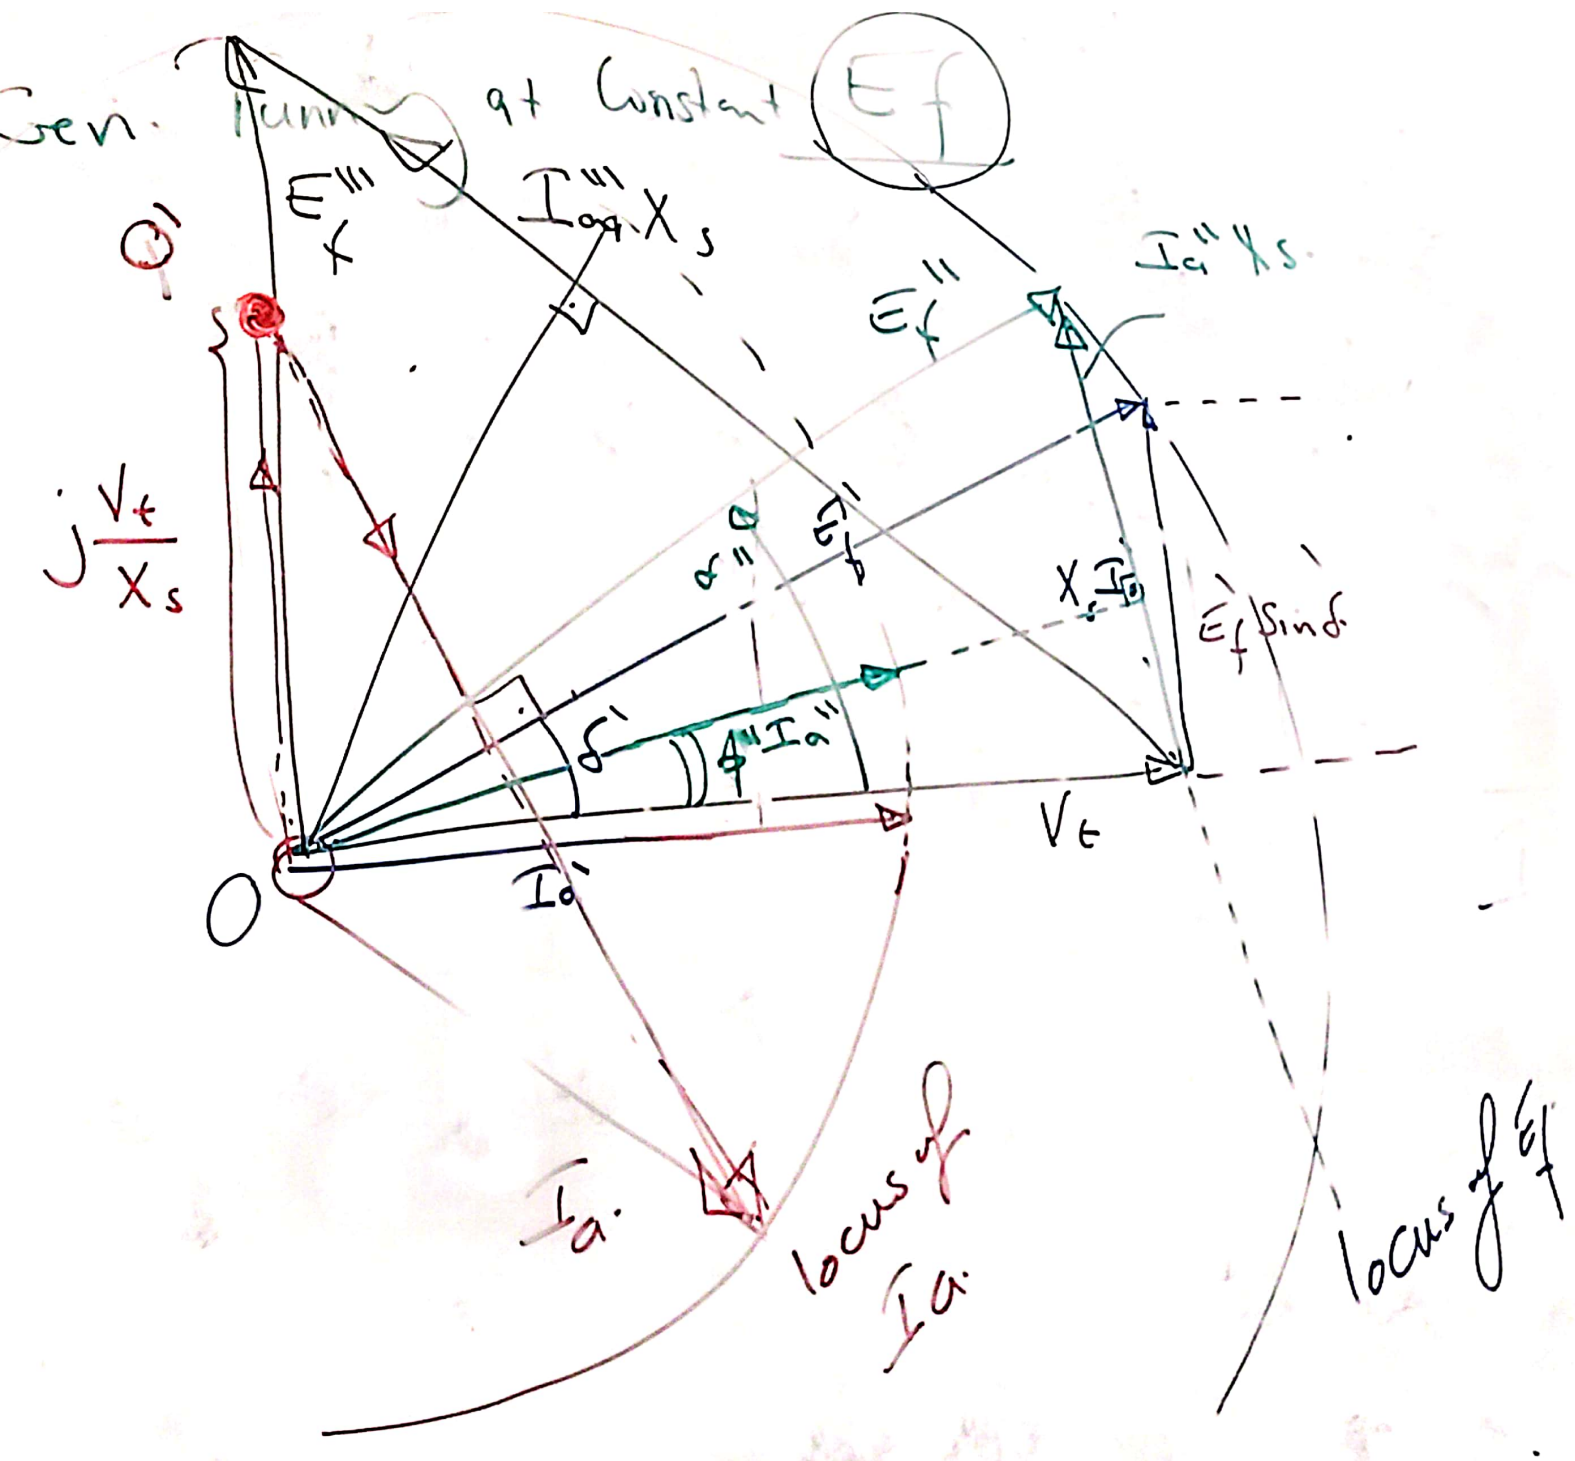 Gen. Runn at Constant Ef
E'''f
I'''a Xs
Q'
Ia'' Xs.
Ef''
j Vt/Xs
E'f
δ''
Xs Ia
Ef Sinδ.
δ'
φ'' Ia''
Vt
Ia'
O
Ia.
locus of
Ia.
locus of Ef